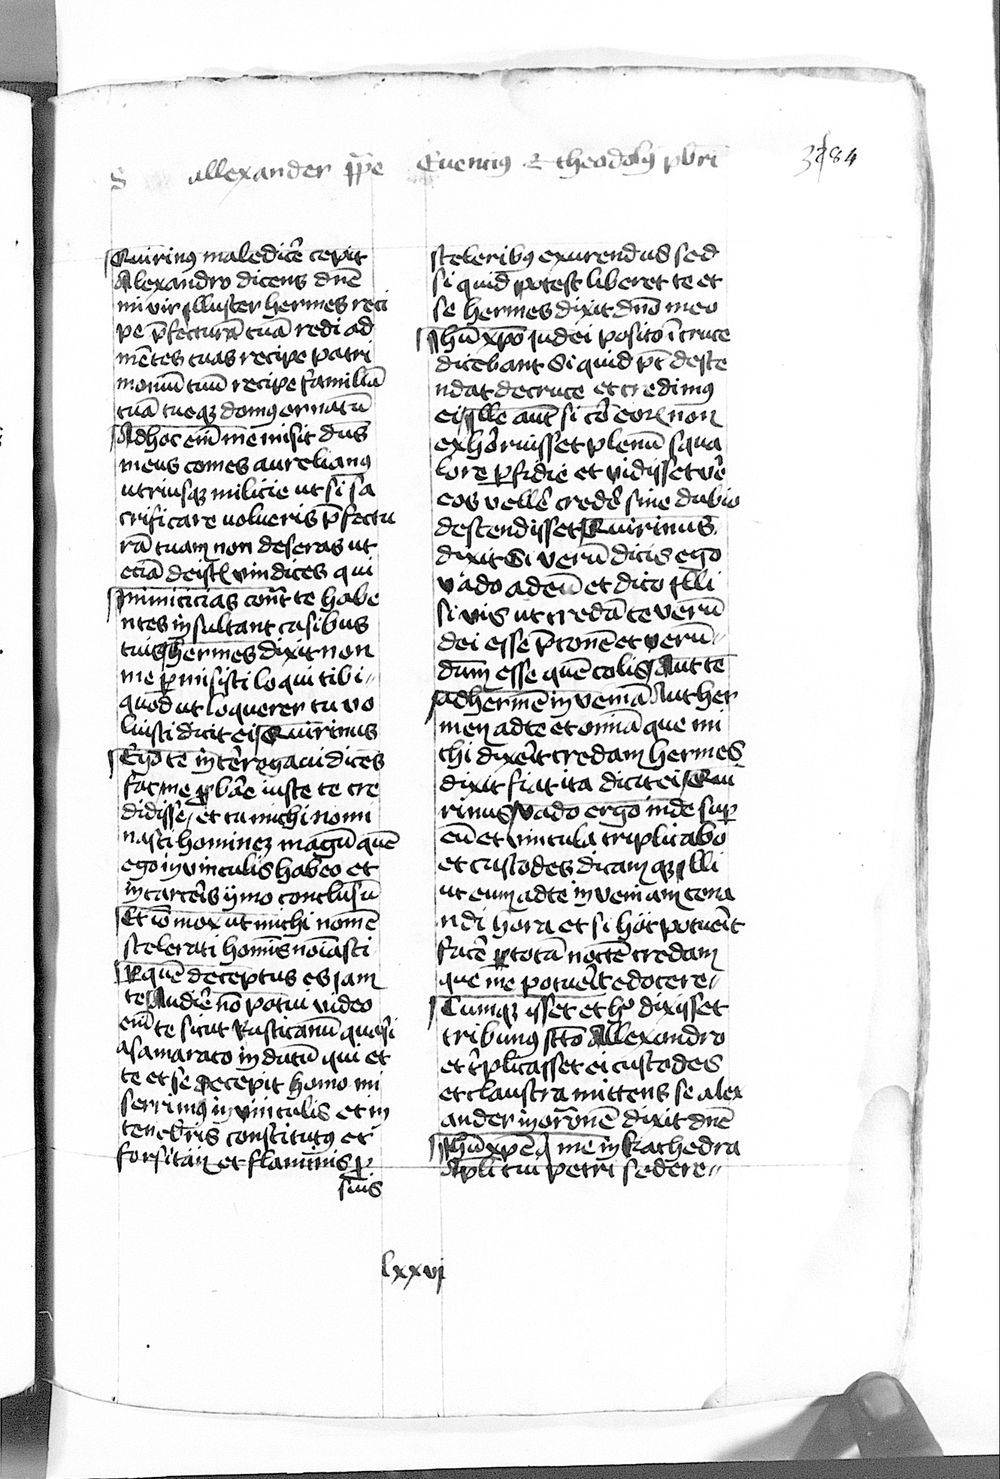 S allexander pp̄e Euencius & theodolus pbr̄i
3784
Quirinus maledicē cepit
Alexandro dicens dn̄e
mi vir jlluster hermes reci
pe p̄fecturā tuā redi ad
mētes tuas recipe patri
moniū tuū recipe familiā
tuā tueqȝ domus ornatū
Adhoc em̄ me misit dn̄s
meus comes aurelianus
utriusqȝ milicie ut si sa
crificare uolueris p̄fectu
rā tuam non deseras ut
eciā deistis vindices qui
jnimicicias cont̄ te habe
ntes insultant casibus
tuis hermes dixit non
me permisisti loqui tibi
quod ut loquerer tu vo
luisti dicit ei Quirinus
Ego te int̄erogaui dicēs
fac me probāre iuste te cre
didissē et tu michi nomi
nasti hominez magnū quē
ego in vinculis habeo et
in carcēris ymo conclusū
Et iō mox ut michi nomē
scelerati homīs noīasti
Per quē deceptus es jam
te Audiē nō potui video
em̄ te sicut Rusticanū quasi
asamaraco indutū qui et
te et se decepit homo mi
serrimus in vinculis et in
tenebris constitutus et
forsitan et flammis per
suis
sceleribus exurendus sed
si quid potest liberet te et
se hermes dixit dn̄o meo
Jhū xp̄o judei posito ī cruce
dicebant Si quid p̄t desce
ndat decruce et credimus
ei jlle aut̄ si cor eorum non
exhōruisset plenū squa
lore perfidie et vidisset vē
eos vellē credē sine dubio
descendisset Quirinus
dixit Si verū dicis ego
vado ad eū et dico jlli
si vis ut credā te verū
dei esse p̄conē et verū
dām esse quē colis Aut te
ad hermē inveniā Aut her
men ad te et omnia que mi
chi dixēit credam hermes
dixit fiat ita dicit ei Qui
rinus Vado ergo inde super
eū et vincula triplicabo
et custodes dicam qȝ jlli
ut eum ad te inveniam cena
ndi hora et si hoc potuerit
facē per totā noctē credam
que me potuerit edocere
Cumqȝ isset et hoc dixisset
tribunus scō Allexandro
et triplicasset ei custodes
et claustra mittens se alex
ander in orōnē dixit dn̄e
Jhū xpē qi me in kathedra
Apli tui petri sedere
lxxvj